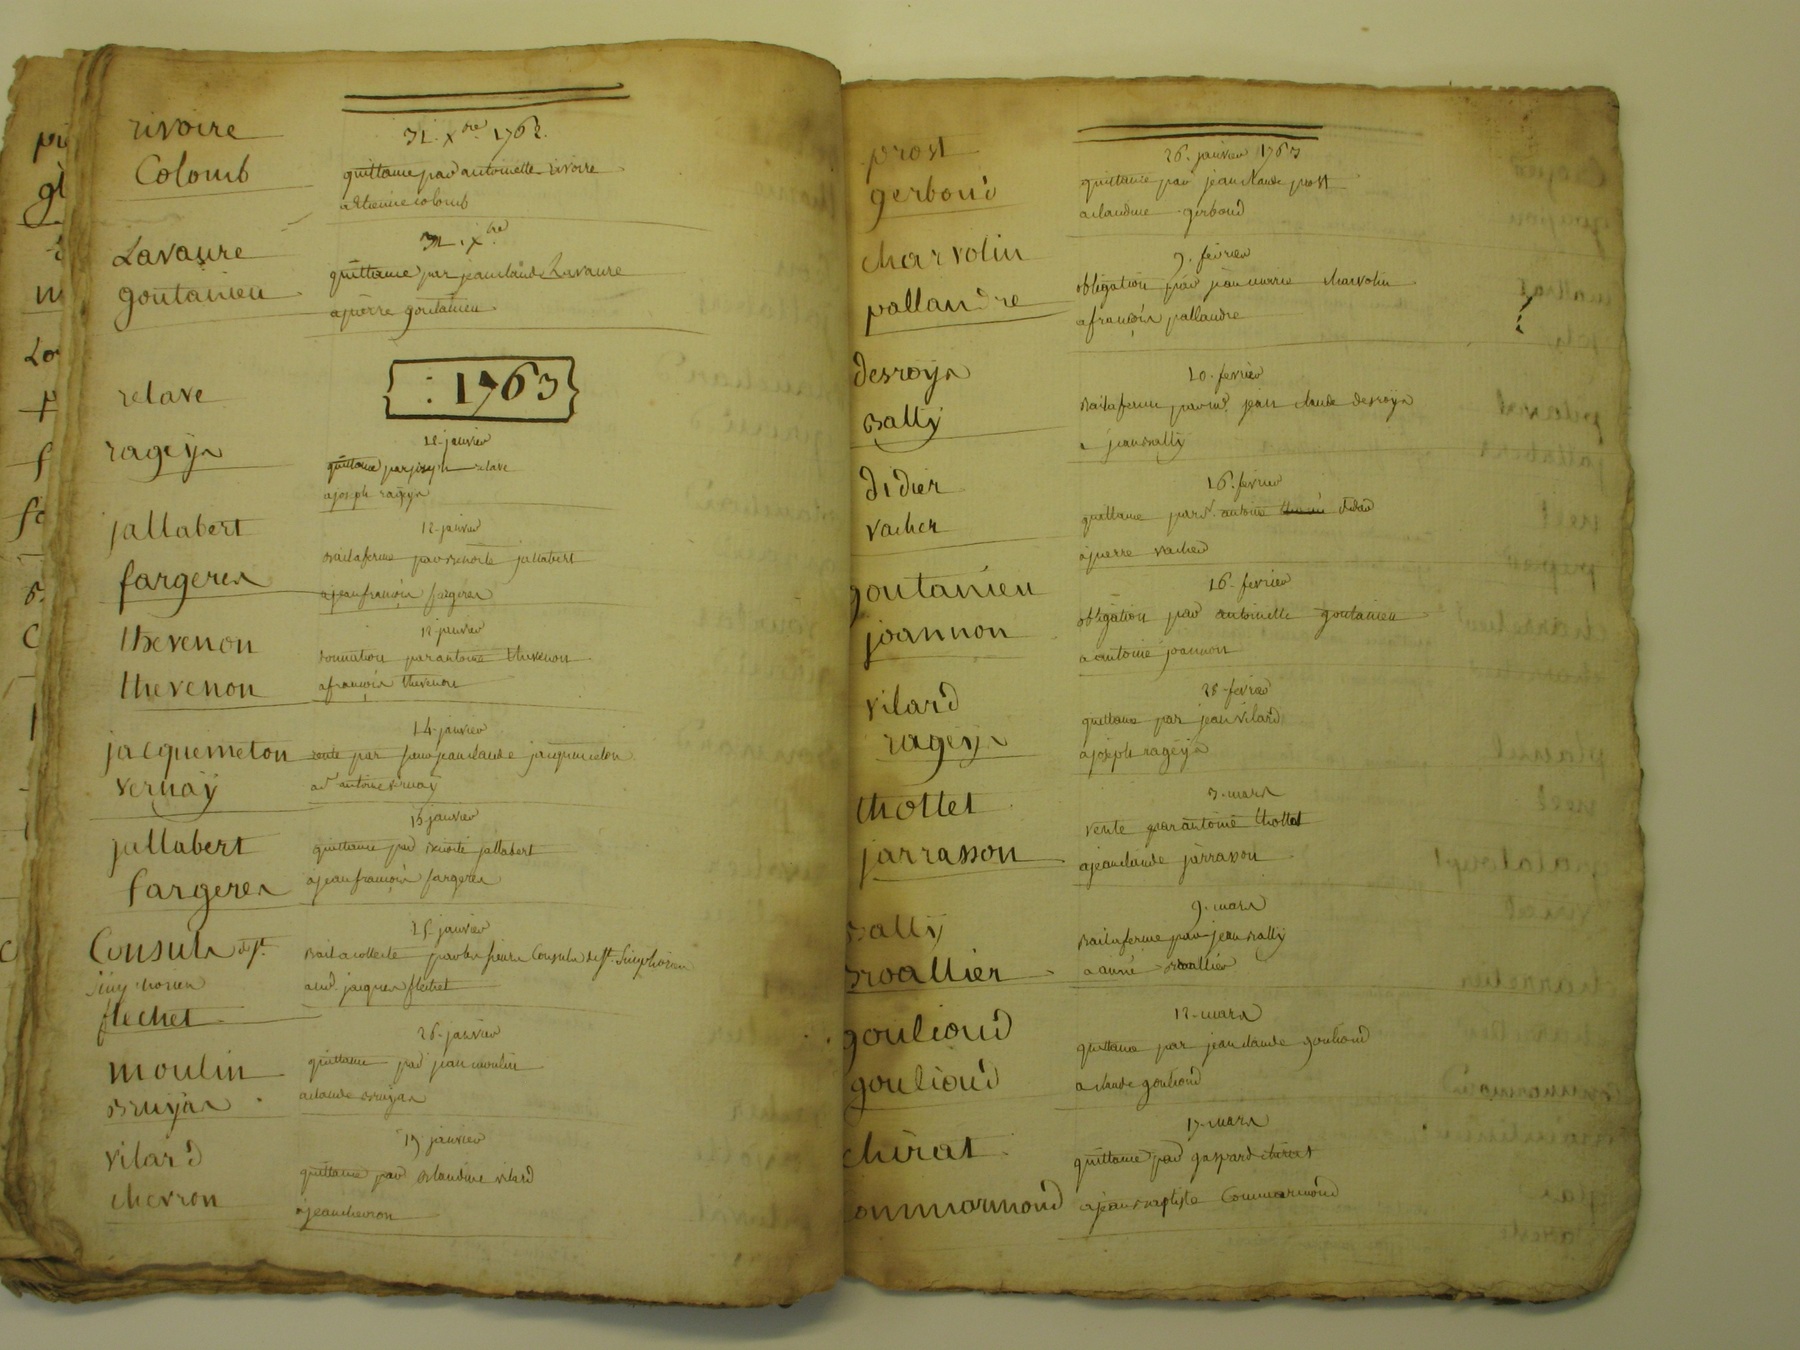 rivoire
Colomb
31. Xbre 1762.
quittance par antoinette rivoire
a Etienne Colomb
Lavaure
goutanieu
31. Xbre
quittance par jean claude Lavaure
a pierre goutanieu
: 1763
relave
rageys
12. janvier
quittance par joseph relave
a joseph rageys
jallabert
fargeres
12. janvier
Bail a ferme par Benoite jallabert
a jean françois fargeres
thevenon
thevenon
12. janvier
par antoine thevenon
a françois thevenon
jacquemeton
vernaÿ
14. janvier
vente par jean claude jacquemeton
a Sr antoine vernaÿ
jallabert
fargeres
15. janvier
quittance par Benoite jallabert
a jean françois fargeres
Consuls de St.
simphorien
flechet
25. janvier
Bail a collecte par les sieurs Consuls de St. Simphorien
a md. jacques flechet
moulin
Bruÿas
26. janvier
quittance par jean moulin
a claude Bruÿas
vilard
chevron
janvier
quittance par Blandine vilard
a jean chevron
prost
gerboud
26. janvier 1763
quittance par jean claude prost
a claudine gerboud
charvolin
pallandre
9. fevrier
obligation par charvolin
a françois pallandre
desroÿs
Bally
10. fevrier
Bail a ferme par jean claude desroÿs
a jean Bally
didier
vacher
16. fevrier
quittance par Sr. antoine didier
a pierre vacher
goutanieu
joannon
16. fevrier
obligation par antoinette goutanieu
a antoine joannon
vilard
rageÿs
28. fevrier
quittance par jean vilard
a joseph rageÿs
thollet
jarrasson
3. mars
vente par antoine thollet
a jean claude jarrasson
Bally
Broallier
9. mars
Bail a ferme par jean Bally
a aimé Broallier
goulioud
goulioud
12. mars
quittance par jean claude goulioud
a claude goulioud
chirat
Commarmond
17. mars
quittance par gaspard chirat
a jean Baptiste Commarmond